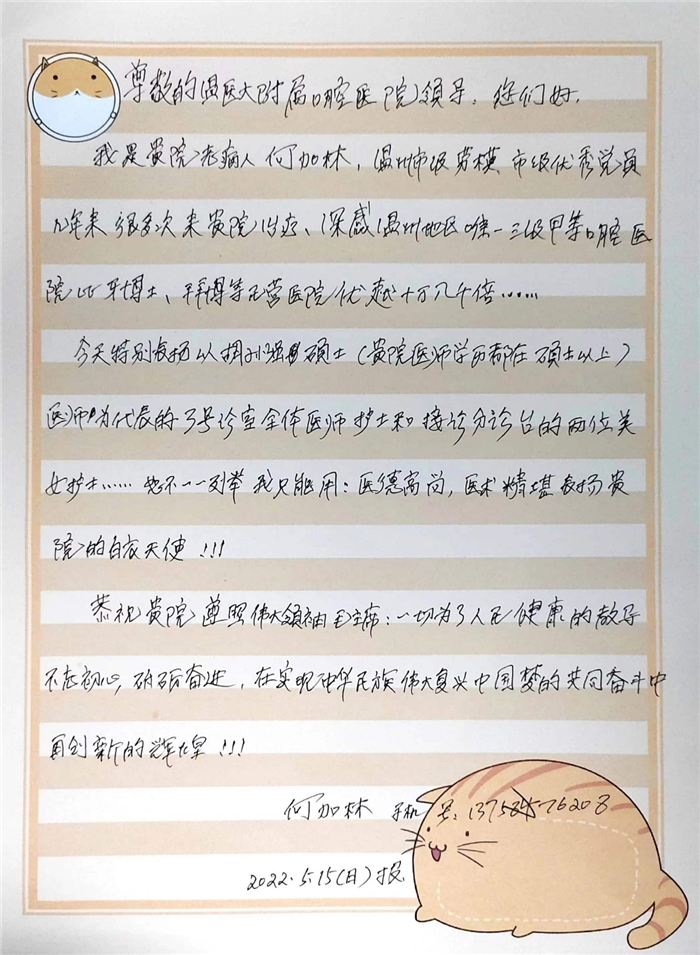 尊敬的温医大附属口腔医院领导：您们好.
我是贵院老病人何加林，温州市级劳模、市级优秀党员
几年来很多次来贵院治疗、深感温州地区唯一三级甲等口腔医
院比牙博士、拜博等民营医院优越十万八千倍……
今天特别表扬以 硕士（贵院医师学历都在硕士以上）
医师为代表的3号诊室全体医师护士和接诊分诊台的两位美
女护士……恕不一一列举我只能用：医德高尚，医术精堪表扬贵
院的白衣天使！!!
恭祝贵院遵照伟大领袖毛主席：一切为了人民健康的教导
不忘初心，砥砺奋进，在实现中华民族伟大复兴中国梦的共同奋斗中
再创新的辉煌！!!
何加林 手机号：
2022.5.15(日)报